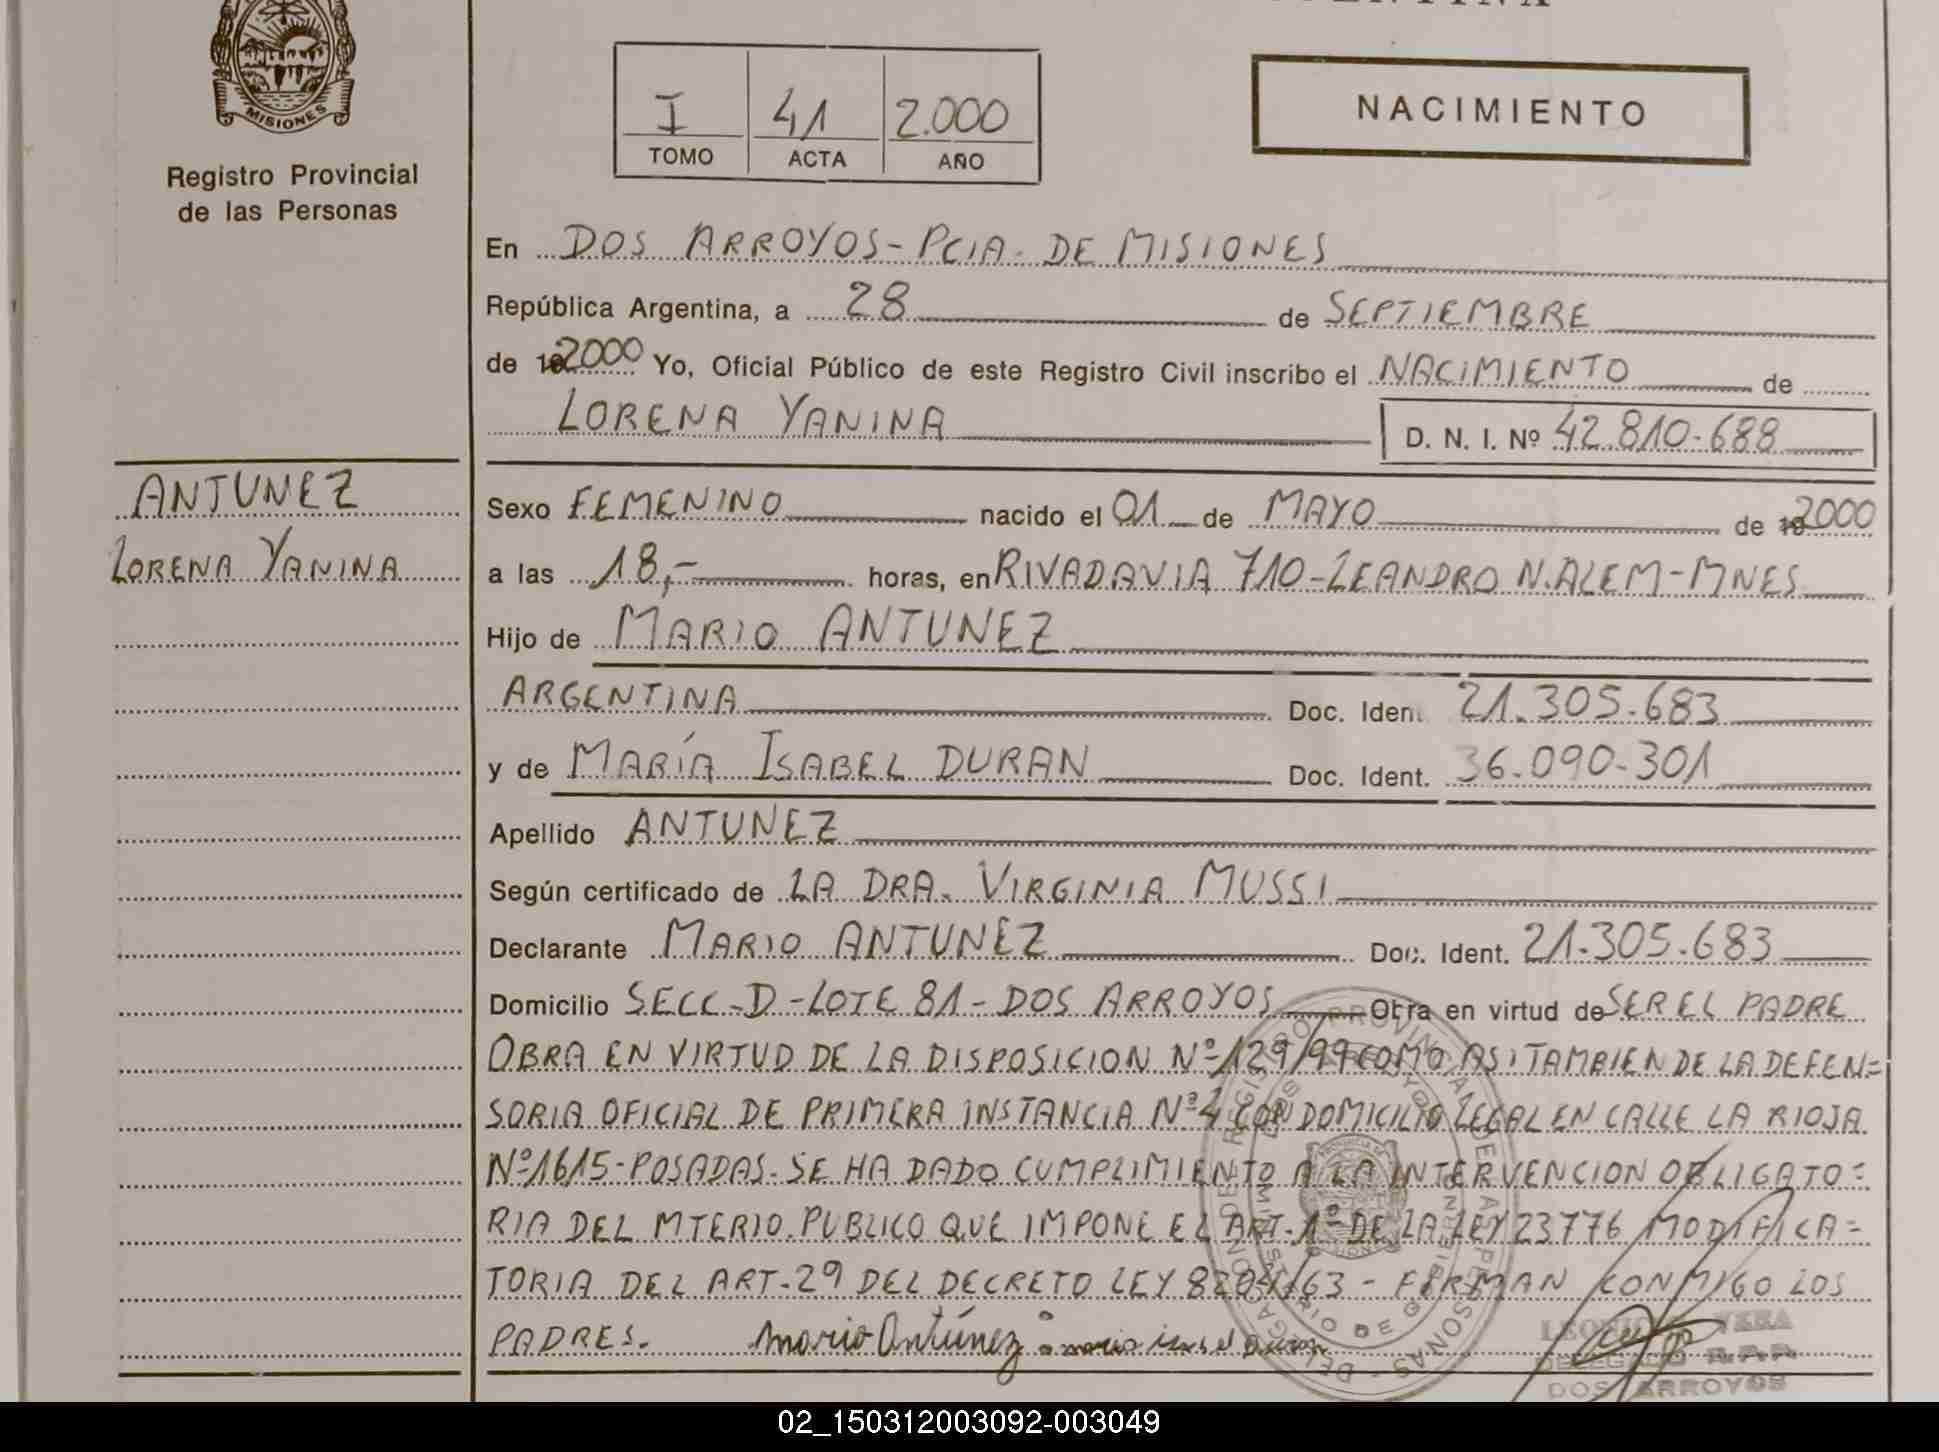 MISIONES
Registro Provincial
de las Personas
I 41 2.000
TOMO ACTA AÑO
NACIMIENTO
En DOS ARROYOS - PCIA. DE MISIONES
República Argentina, a 28 de SEPTIEMBRE
de 2000 Yo, Oficial Público de este Registro Civil inscribo el NACIMIENTO de
LORENA YANINA D. N. I. Nº 42.810.688
ANTUNEZ
LORENA YANINA
Sexo FEMENINO nacido el 01 de MAYO de 2000
a las 18,- horas, en RIVADAVIA 710-LEANDRO N. ALEM-MNES
Hijo de MARIO ANTUNEZ
ARGENTINA Doc. Ident. 21.305.683
y de MARÍA ISABEL DURAN Doc. Ident. 36.090.301
Apellido ANTUNEZ
Según certificado de LA DRA. VIRGINIA MUSSI
Declarante MARIO ANTUNEZ Doc. Ident. 21.305.683
Domicilio SECC-D-LOTE 81-DOS ARROYOS Obra en virtud de SER EL PADRE
OBRA EN VIRTUD DE LA DISPOSICION Nº 129/99 COMO ASI TAMBIEN DE LA DEFEN=
SORIA OFICIAL DE PRIMERA INSTANCIA Nº 4 CON DOMICILIO LEGAL EN CALLE LA RIOJA
Nº 1615-POSADAS. SE HA DADO CUMPLIMIENTO A LA INTERVENCION OBLIGATO=
RIA DEL MTERIO. PUBLICO QUE IMPONE EL ART. 1º DE LA LEY 23776 MODIFICA=
TORIA DEL ART-29 DEL DECRETO LEY 8204/63 - FIRMAN CONMIGO LOS
PADRES. Mario Antúnez
DELEGADO R.P.P.
DOS ARROYOS
02_150312003092-003049